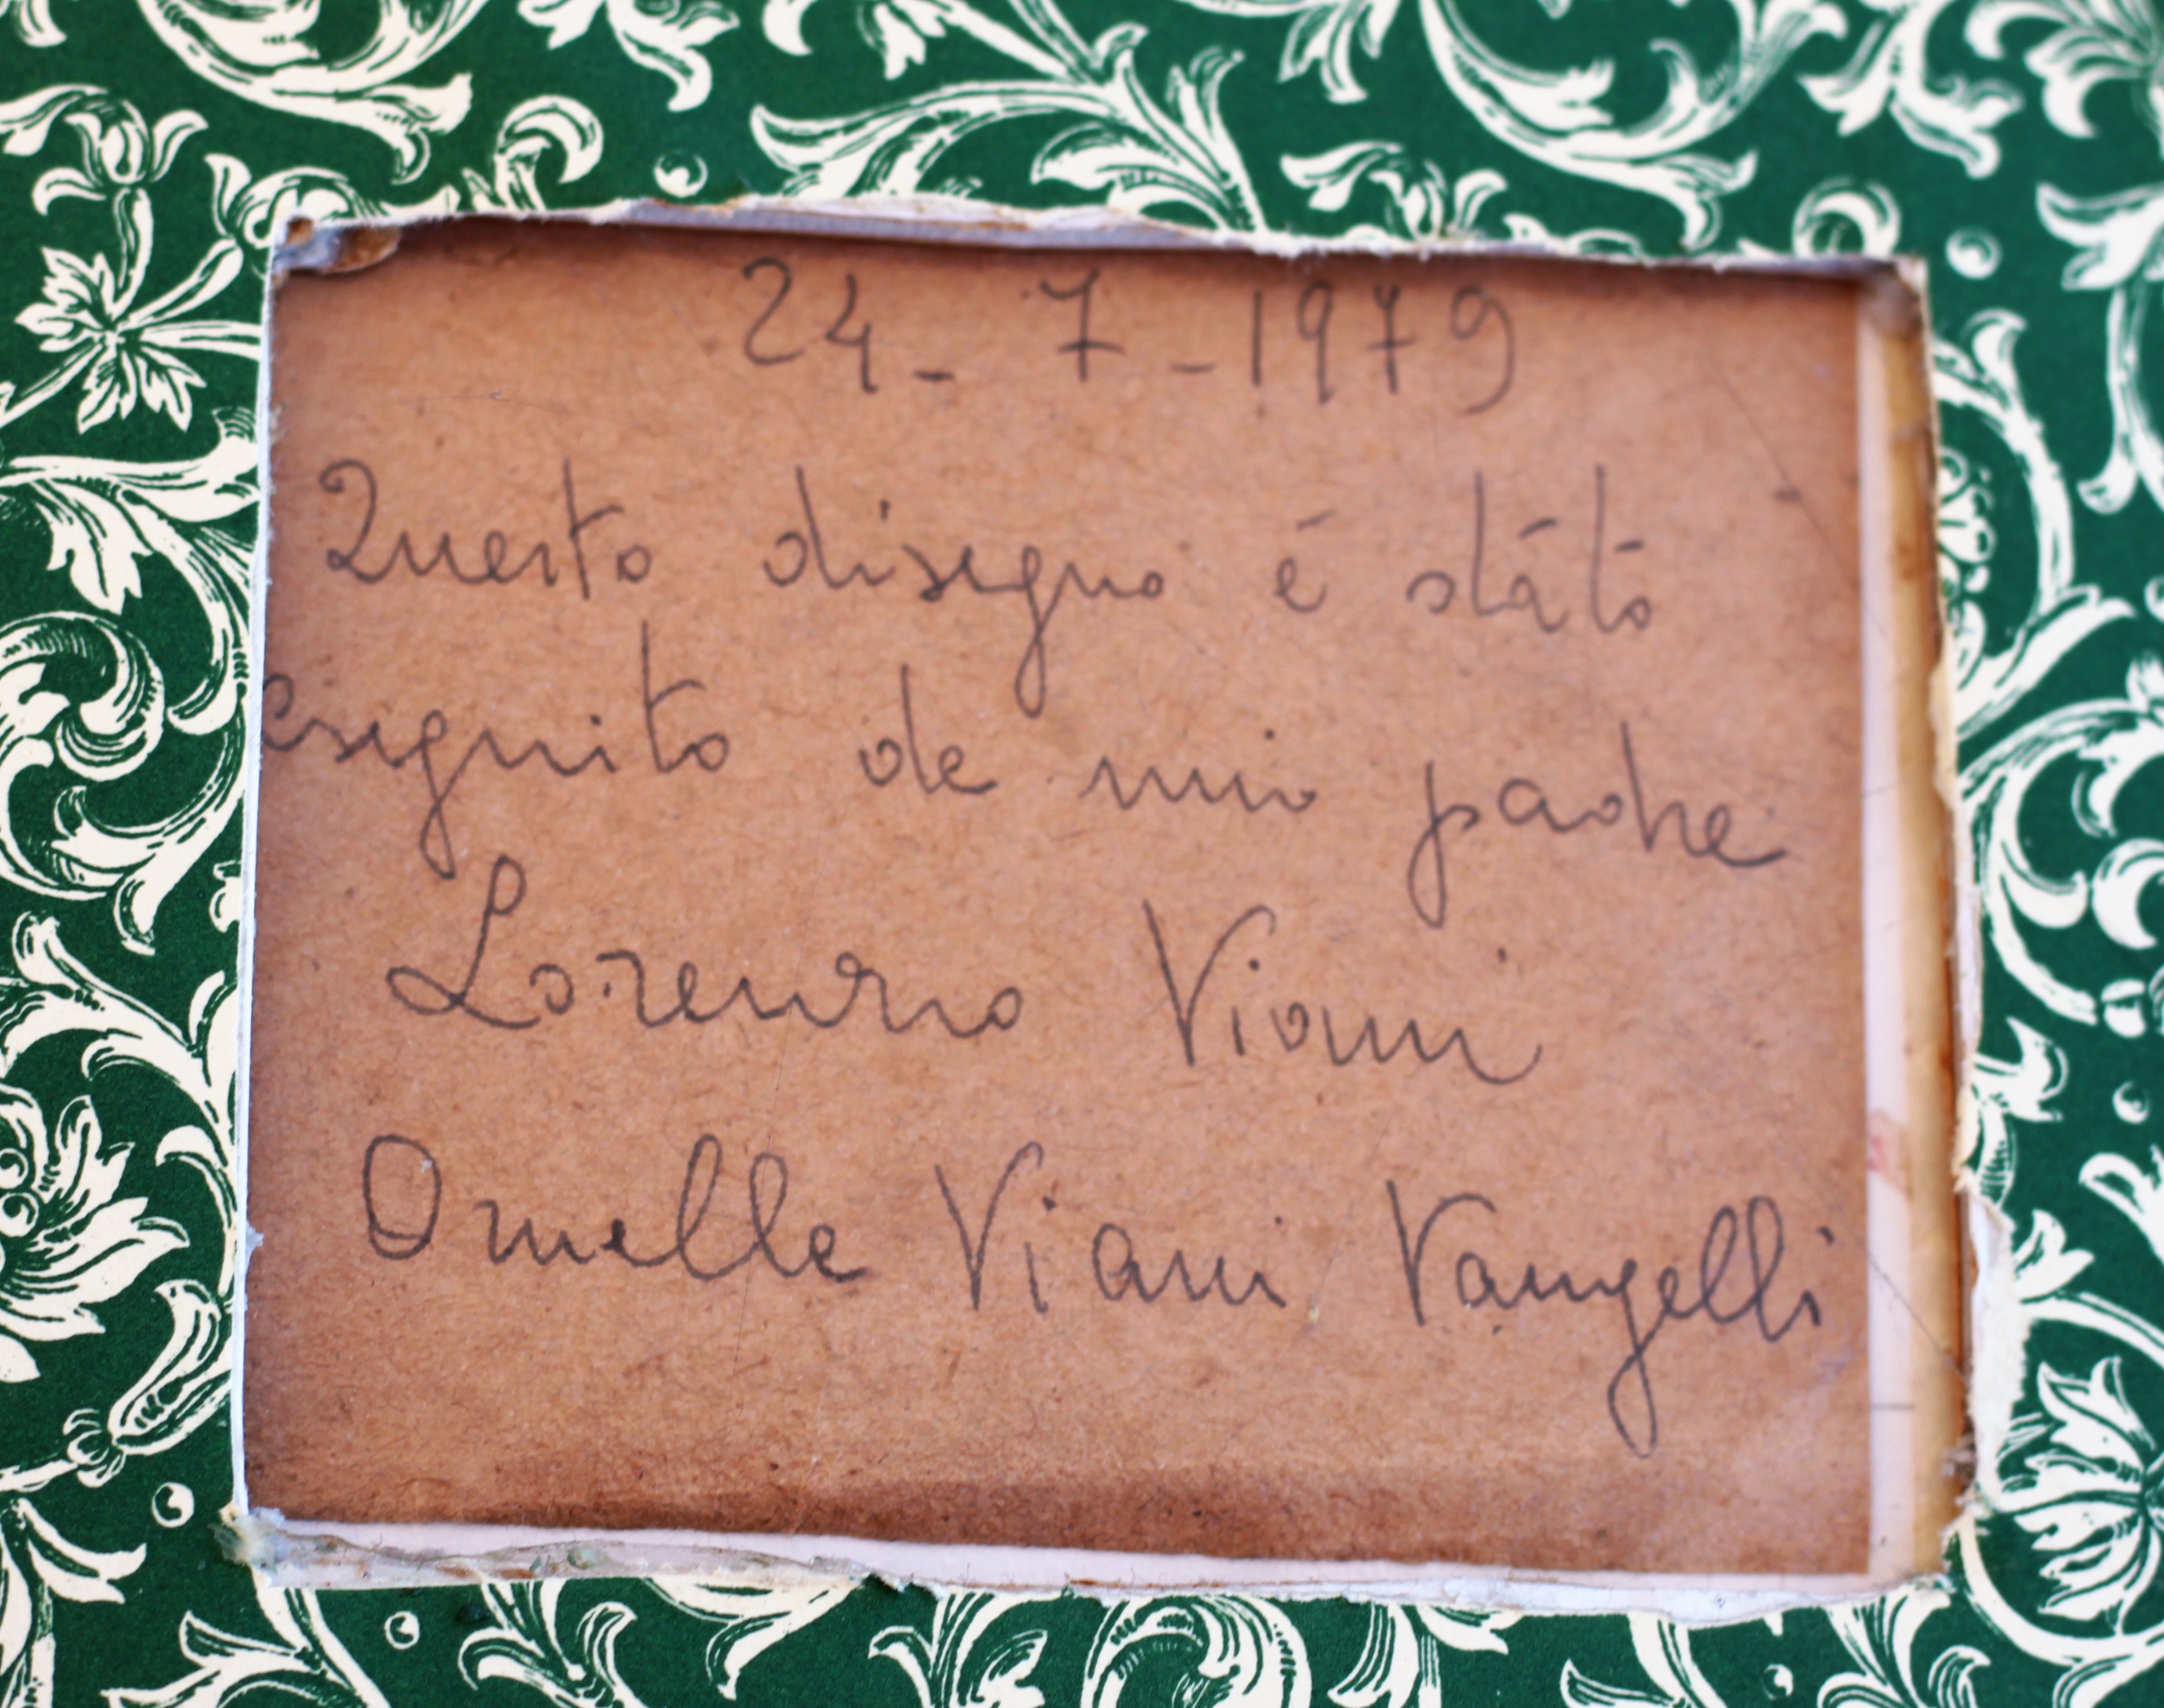 24-7-1979
Questo disegno é státo
eseguito da mio padre
Lorenzo Viani
Ornella Viani Vangelli